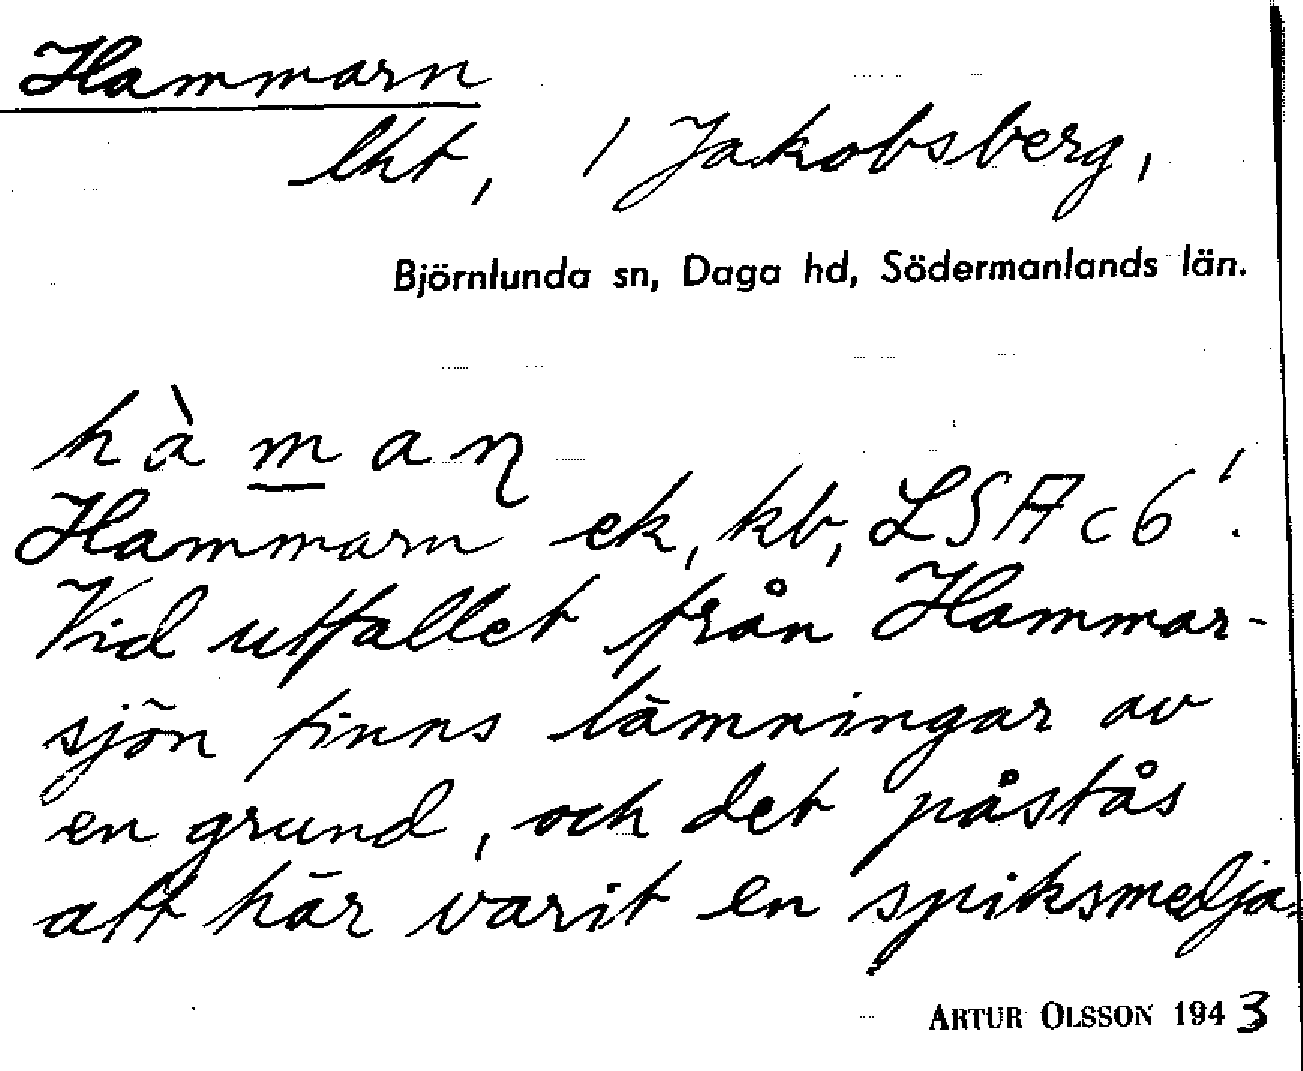 Hammarn
lht, / Jakobsberg,
Björnlunda sn, Daga hd, Södermanlands län.
hàmaɳ
Hammarn ek, kb, LSA c6'.
Vid utfallet från Hammar-
sjön finns lämningar av
en grund, och det påstås
att här varit en spiksmedja.
ARTUR OLSSON 1943